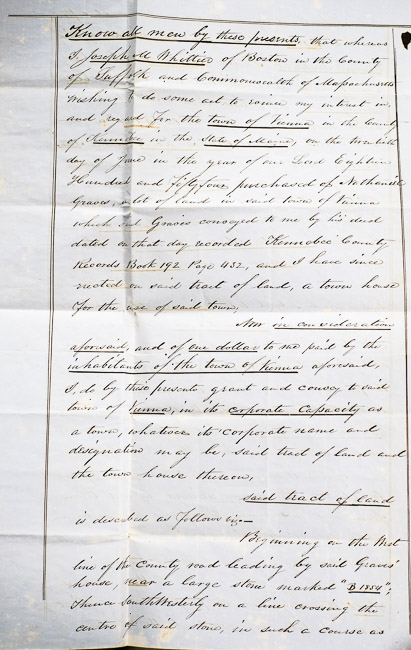 Know all men by these presents, that whereas
I Joseph M Whittier of Boston in the County
of Suffolk and Commonwealth of Massachusetts
wishing to do some act to evince my interest in,
and regard for the town of Vienna in the County
of Kennebec in the State of Maine, on the
day of June in the year of our Lord Eighteen
Hundred and fiftyfour purchased of Nathaniel
Graves, a lot of land in said town of Vienna
which said Graves conveyed to me by his deed
dated on that day recorded Kennebec County
Records Book 192 Page 432, and I have since
erected on said tract of land, a town house
for the use of said town,
Now in consideration
aforesaid, and of one dollar to me paid by the
inhabitants of the town of Vienna aforesaid,
I, do by these presents, grant and convey to said
town of Vienna, in its corporate Capacity as
a town, whatever its corporate name and
designation may be, said tract of land and
the town house thereon,
said tract of land
is described as follows viz—
Beginning on the West
line of the County road leading by said Graves'
house, near a large stone marked "B 1854";
thence SouthWesterly on a line crossing the
centre of said stone, in such a course as